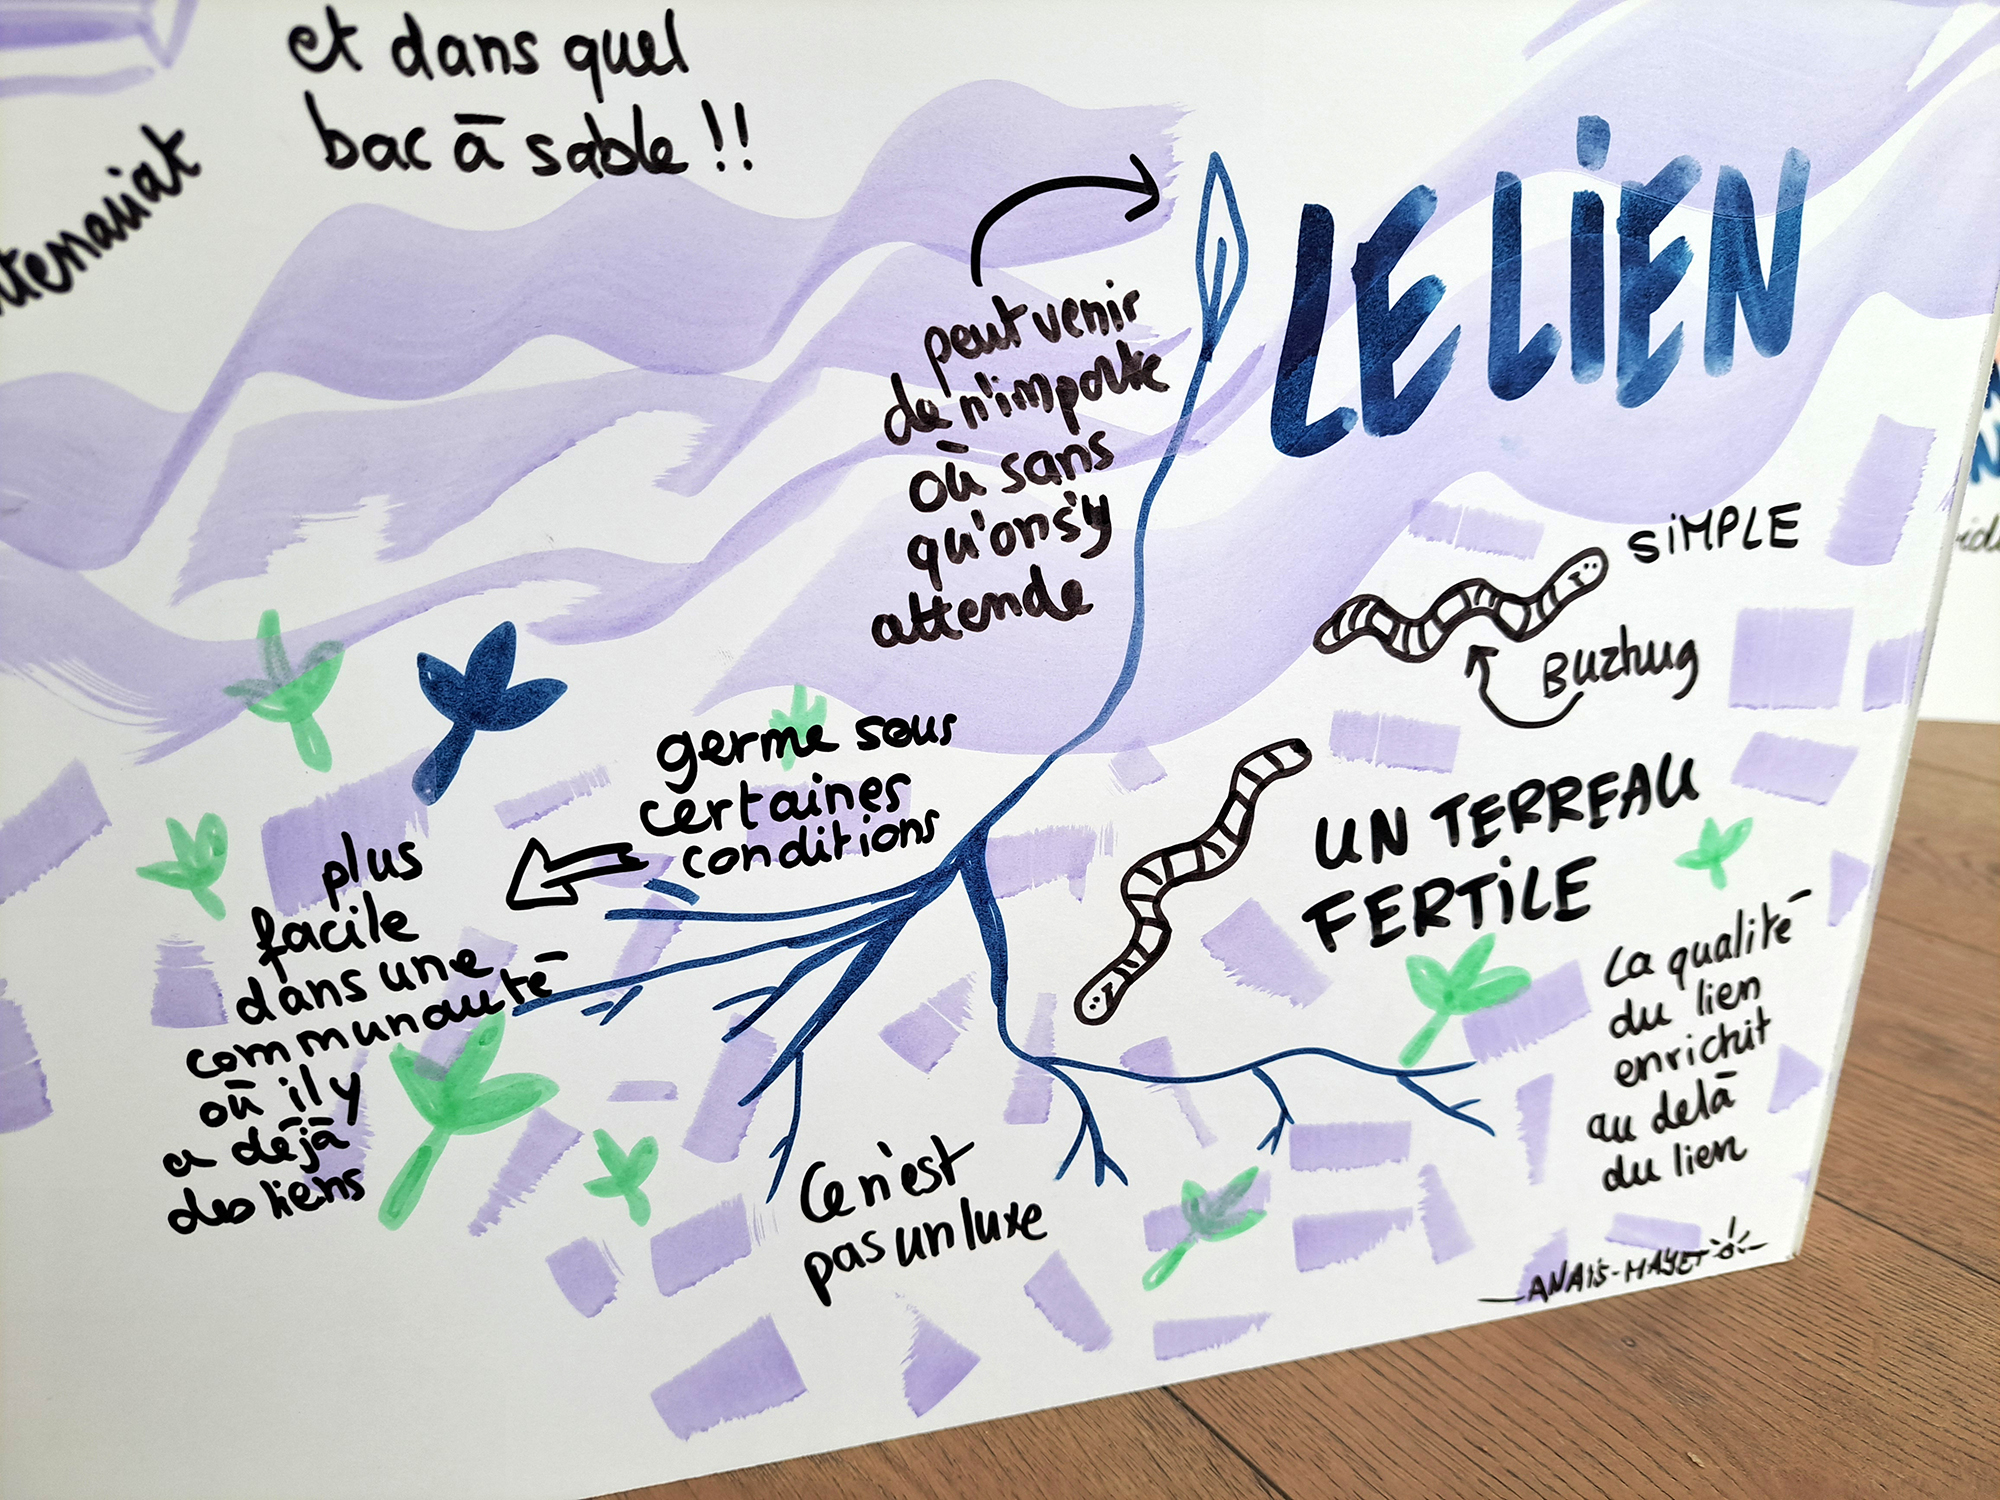 et dans quel
bac à sable !!
LE LIEN
peut venir
de n'importe
où sans
qu'on s'y
attende
SIMPLE
Buzhug
germe sous
certaines
conditions
UN TERREAU
FERTILE
plus
facile
dans une
communauté
où il y
a déjà
des liens
La qualité
du lien
enrichit
au delà
du lien
Ce n'est
pas un luxe
ANAIS-MAYET